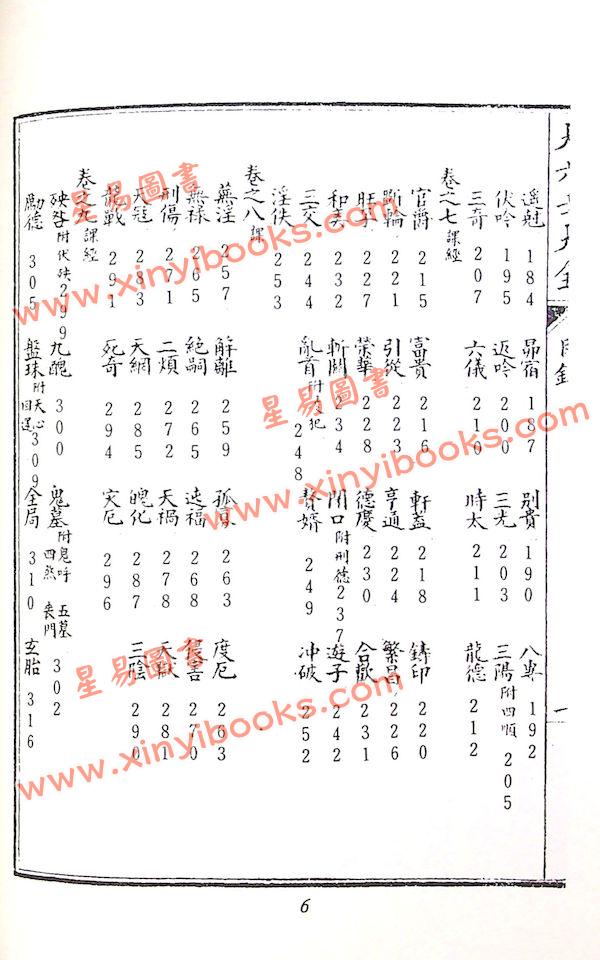 大六壬大全 目錄 一
遥尅 184 昴宿 187 别責 190 八專 192
伏吟 195 返吟 200 三光 203 三陽 附四順 205
三奇 207 六儀 210 時太 211 龍德 212
卷之七 課經
官爵 215 富貴 216 軒蓋 218 鑄印 220
斷輪 221 引從 223 亨通 224 繁昌 226
旺孕 227 榮華 228 德慶 230 合歡 231
和美 232 斬關 234 閉口 附刑德 237 遊子 242
三交 244 亂首 附 犯 248 贅婿 249 冲破 252
淫佚 253
卷之八 課
蕪淫 257 解離 259 孤 263 度厄 263
無禄 265 絕嗣 265 迍福 268 侵害 270
刑傷 271 二煩 272 天禍 278 天獄 281
天寇 283 天網 285 魄化 287 三陰 290
龍戰 291 死奇 294 灾厄 296
卷之九 課經
殃咎 附伏殃 299 九醜 300 鬼墓 附鬼呼 四煞 五墓 喪門 302
勵德 305 盤珠 附天心 回還 309 全局 310 玄胎 316
6
星易圖書
www.xinyibooks.com
星易圖書
www.xinyibooks.com
星易圖書
www.xinyibooks.com